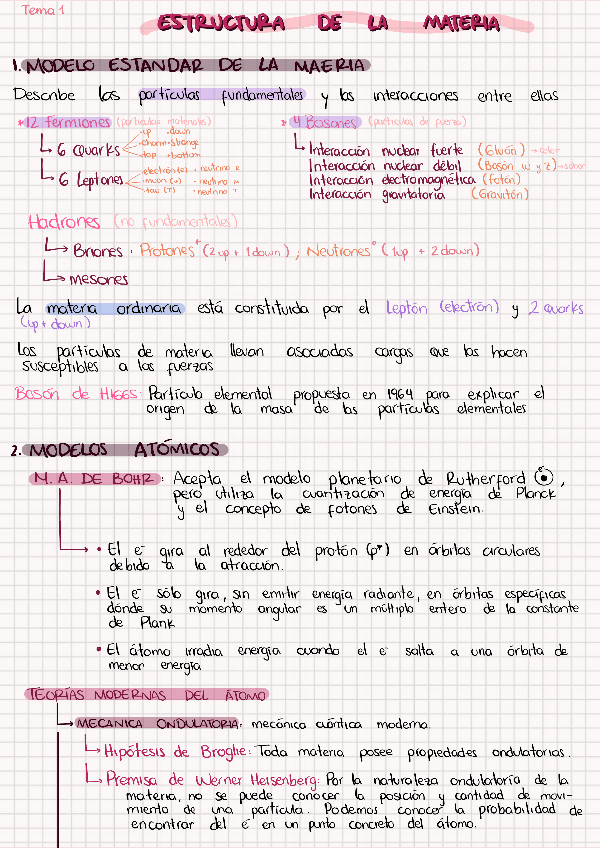 Tema 1
ESTRUCTURA DE LA MATERIA
1. MODELO ESTANDAR DE LA MAERIA
Describe las partículas fundamentales y las interacciones entre ellas
*12 Fermiones (partículas materiales)
↳ 6 Quarks
·up ·down
·charm ·strange
·top ·bottom
↳ 6 Leptones
·electrón (e) · neutrino e
·muón (μ) · neutrino μ
·tau (τ) · neutrino τ
* 4 Bosones (partículas de fuerza)
↳ Interacción nuclear fuerte (Gluón) →color
Interacción nuclear débil (Bosón w y z) →sabor
Interacción electromagnética (Fotón)
Interacción gravitatoria (Gravitón)
Hadrones (no fundamentales)
↳ Briones · Protones⁺ (2 up + 1 down) ; Neutrones° (1up + 2 down)
↳ mesones
La materia ordinaria está constituida por el Leptón (electrón) y 2 quarks
(up + down)
Las partículas de materia llevan asociadas cargas que las hacen
susceptibles a las fuerzas
Bosón de Higgs: Partícula elemental propuesta en 1964 para explicar el
origen de la masa de las partículas elementales
2. MODELOS ATÓMICOS
M. A. DE BOHR: Acepta el modelo planetario de Rutherford,
pero utiliza la cuantización de energía de Planck
y el concepto de fotones de Einstein.
• El e⁻ gira al rededor del protón (p⁺) en órbitas circulares
debido a la atracción.
• El e⁻ sólo gira, sin emitir energía radiante, en órbitas específicas
donde su momento angular es un múltiplo entero de la constante
de Plank
• El átomo irradia energía cuando el e⁻ salta a una órbita de
menor energía
TEORÍAS MODERNAS DEL ÁTOMO
↳ MECANICA ONDULATORIA: mecánica cuántica moderna.
↳ Hipótesis de Broglie: Toda materia posee propiedades ondulatorias.
↳ Premisa de Werner Heisenberg: Por la naturaleza ondulatoria de la
materia, no se puede conocer la posición y cantidad de movi-
miento de una partícula. Podemos conocer la probabilidad de
encontrar del e⁻ en un punto concreto del átomo.